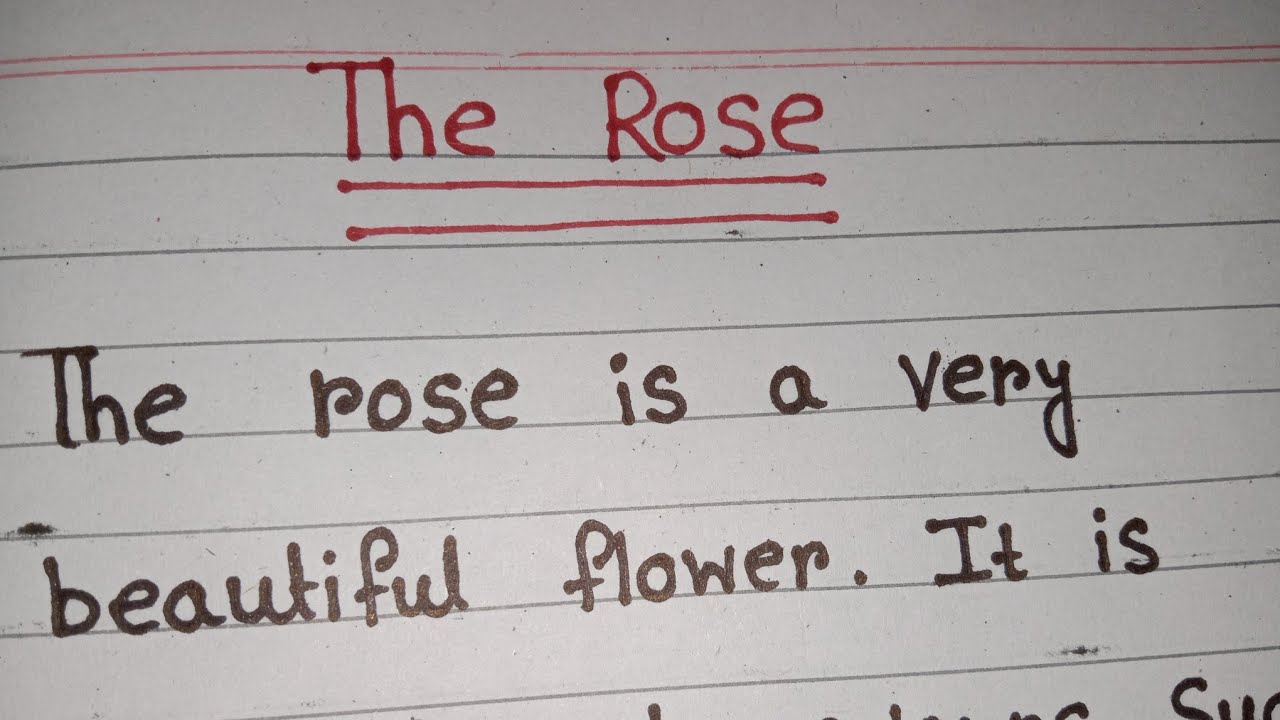 The Rose
The rose is a very
beautiful flower. It is